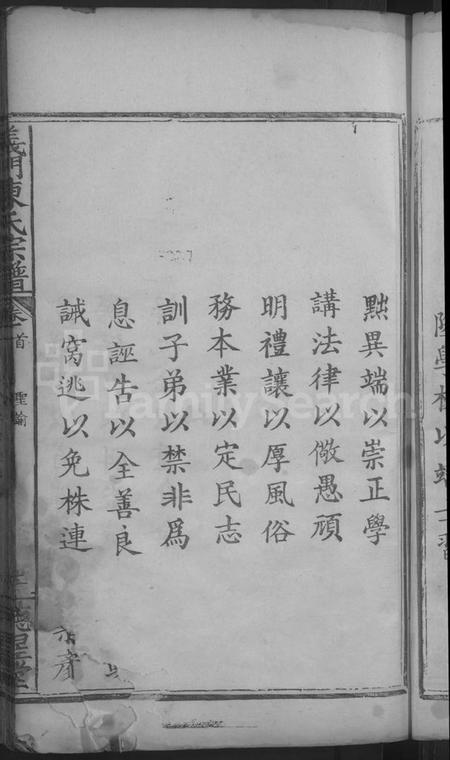 隆學校以端士習
黜異端以崇正學
講法律以儆愚頑
明禮讓以厚風俗
務本業以定民志
訓子弟以禁非爲
息誣告以全善良
誡窩逃以免株連
義門陳氏宗譜
卷首
聖諭
德星堂
FamilySearch